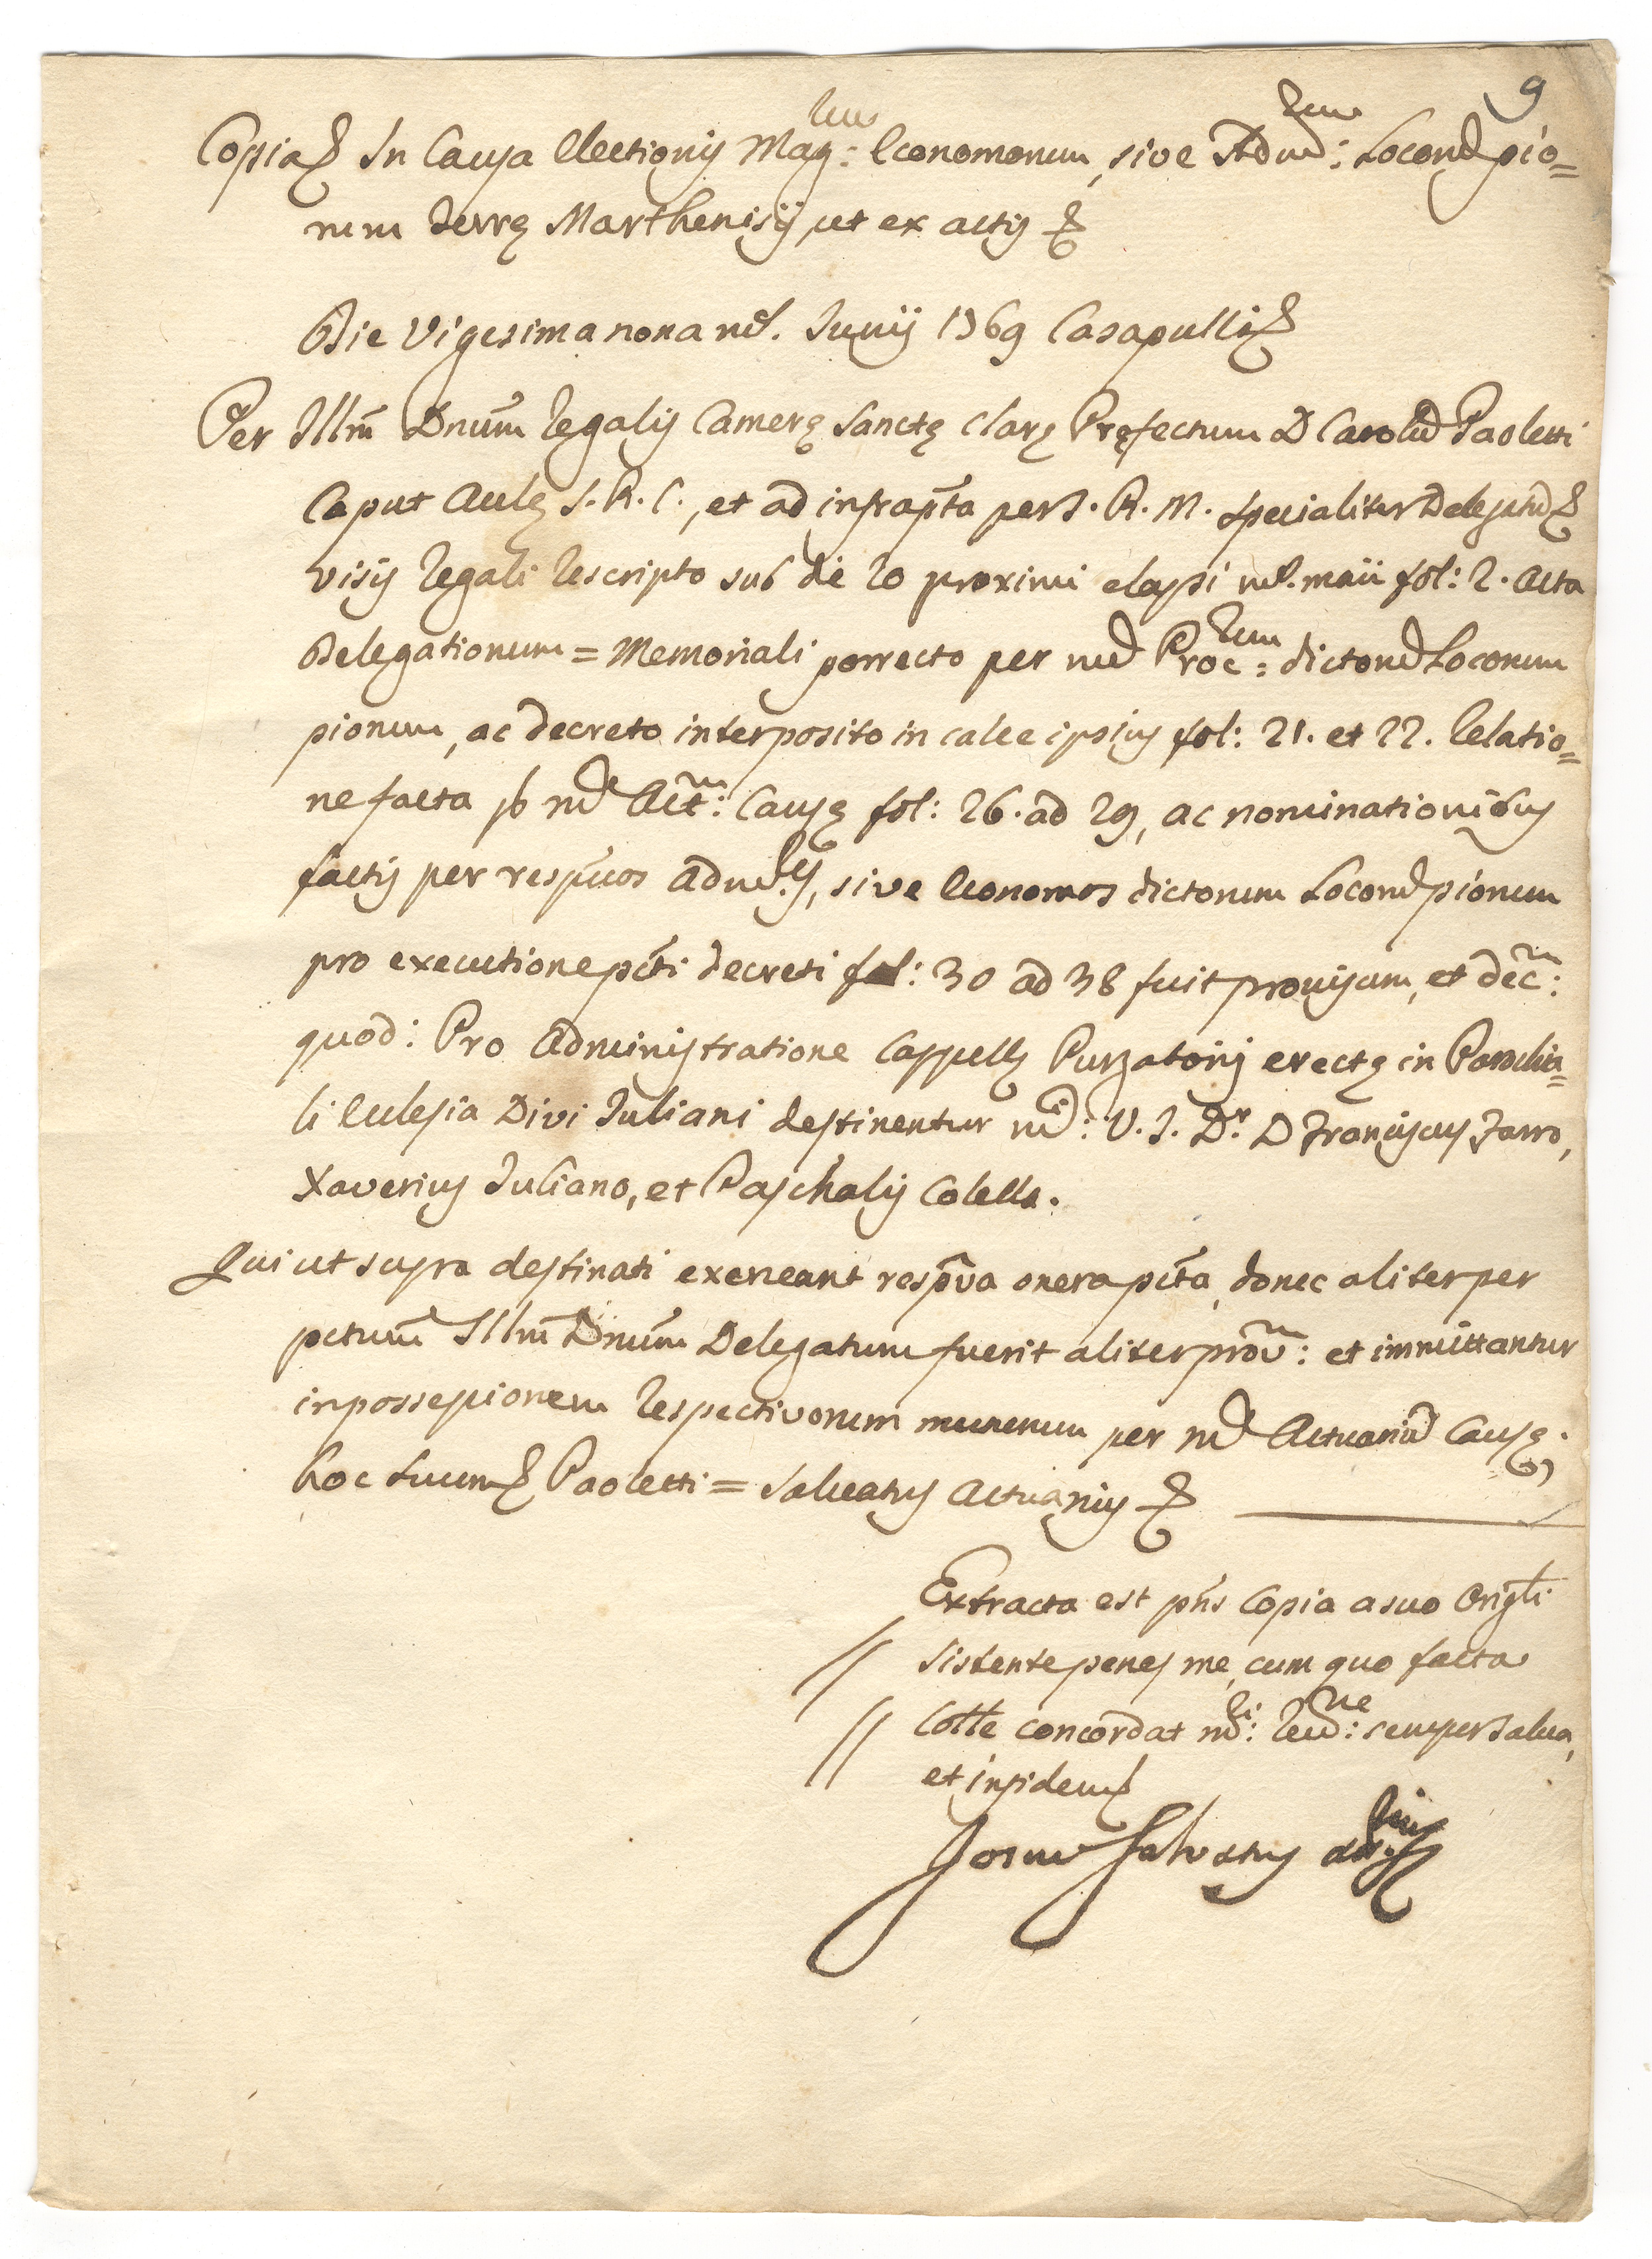 9
Copia In Causa Electionis Mag:rum Economorum, sive Adm:rum Locorum pio=
rum Terrę Marthenisij, ut ex actis
Die Vigesima nona m. Junij 1769 Casapulli
Per Illm Dnum Regalis Camerę Sanctę Clarę Pręfectum D Carolum Paoletti
Caput Aulę S. R. C., et ad infrapta per S. R. M. specialiter Delegatum
visis Regali Rescripto sub die 20 proximi elapsi m. maii fol: 2. Acta
Delegationum = Memoriali porrecto per Proc:rem dictorum Locorum
piorum, ac decreto interposito in calce ipsius fol: 21. et 22. Relatio=
ne facta Act: Causę fol: 26. ad 29, ac nominationibus
factis per respuos Adm:res, sive Economos dictorum Locorum piorum
pro executione pcti decreti fol: 30 ad 38 fuit provisum, et dec:
quod: Pro Administratione Cappellę Purgatorij erectę in Parochia=
li Ecclesia Divi Juliani destinentur m:ci V. J. Dr. D Franciscus Farro,
Xaverius Juliano, et Paschalis Colella.
Qui ut supra destinati exerceant respva onera pcta, donec aliter per
pctum Illm Dnum Delegatum fuerit aliter prov: et immittantur
in possessionem Respectivorum munerum per m Actuarium Causę.
hoc suum Paoletti = Salvatus Actuarius
Extracta est pns Copia a suo Origli
sistente penes me, cum quo facta
Colle concordat m:ri Rev:ne semper salva,
et in fidem
Salvatus act:rius